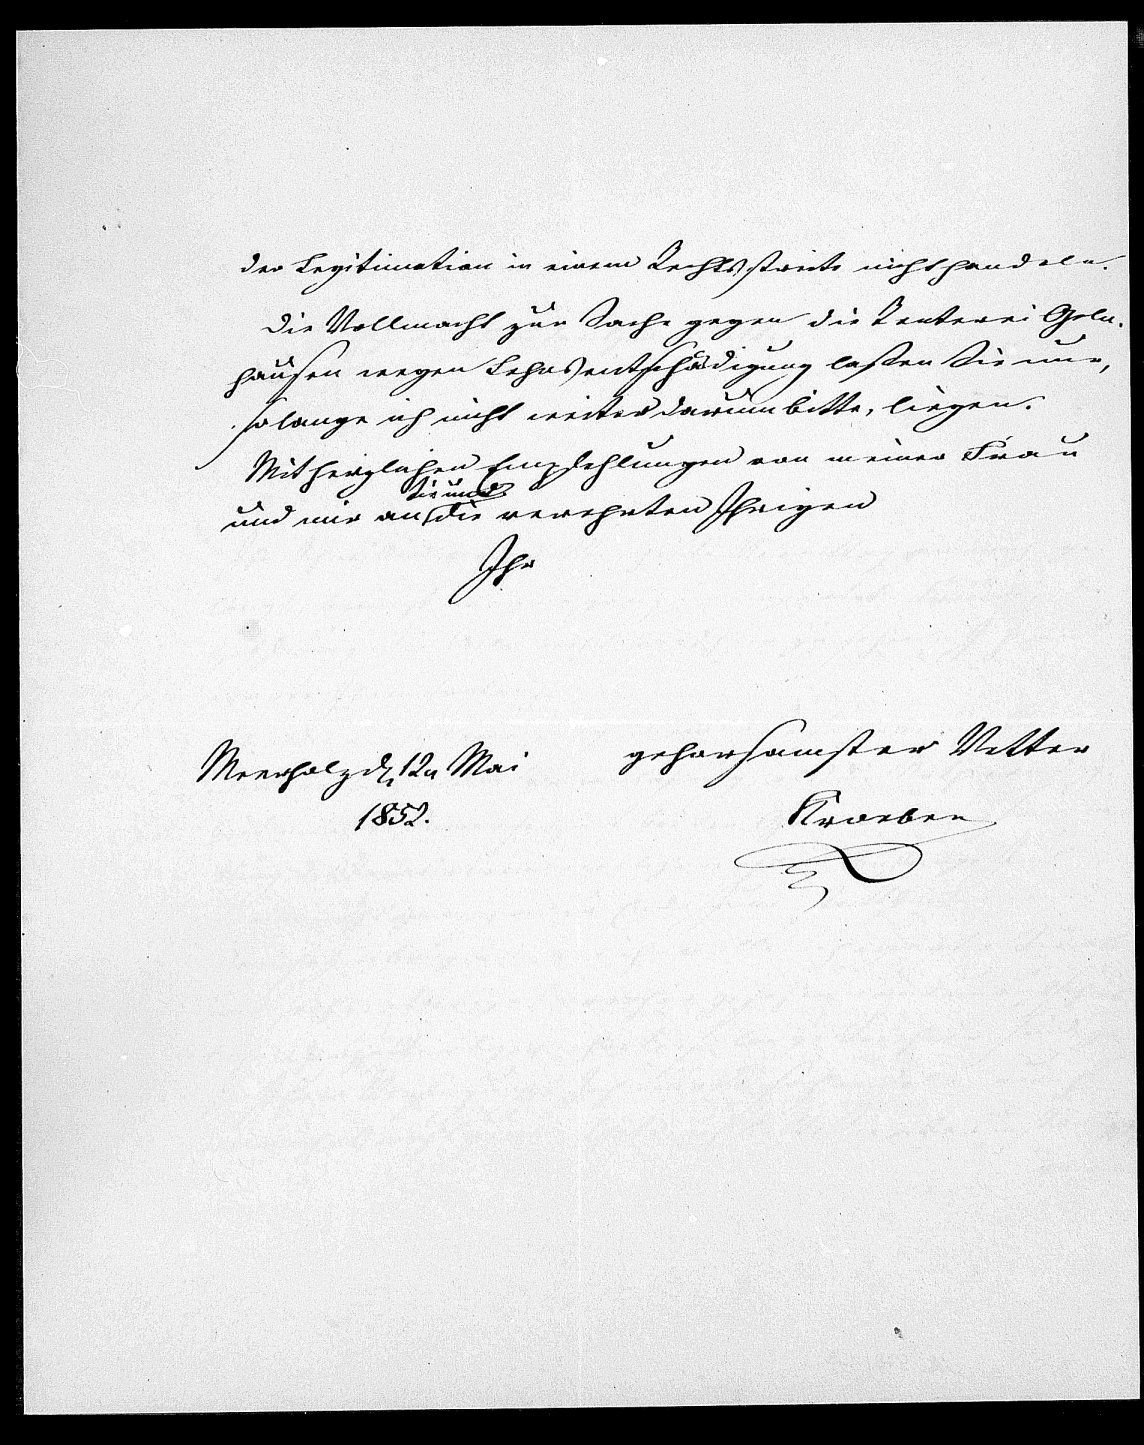 der Legitimation in einem Rechtsstreite nicht handeln.
Die Vollmacht zur Sache gegen die Renterei Geln-
hausen wegen Lehnsentschädigung laßen Sie nur,
solange ich nicht weiter darum bitte, liegen.
Mit herzlichen Empfehlungen von meiner Frau
Sie und
und mir an die verehrten Ihrigen
Ihr
gehorsamster Vetter
Meerholz d. 12n Mai
1852.
Kroeber